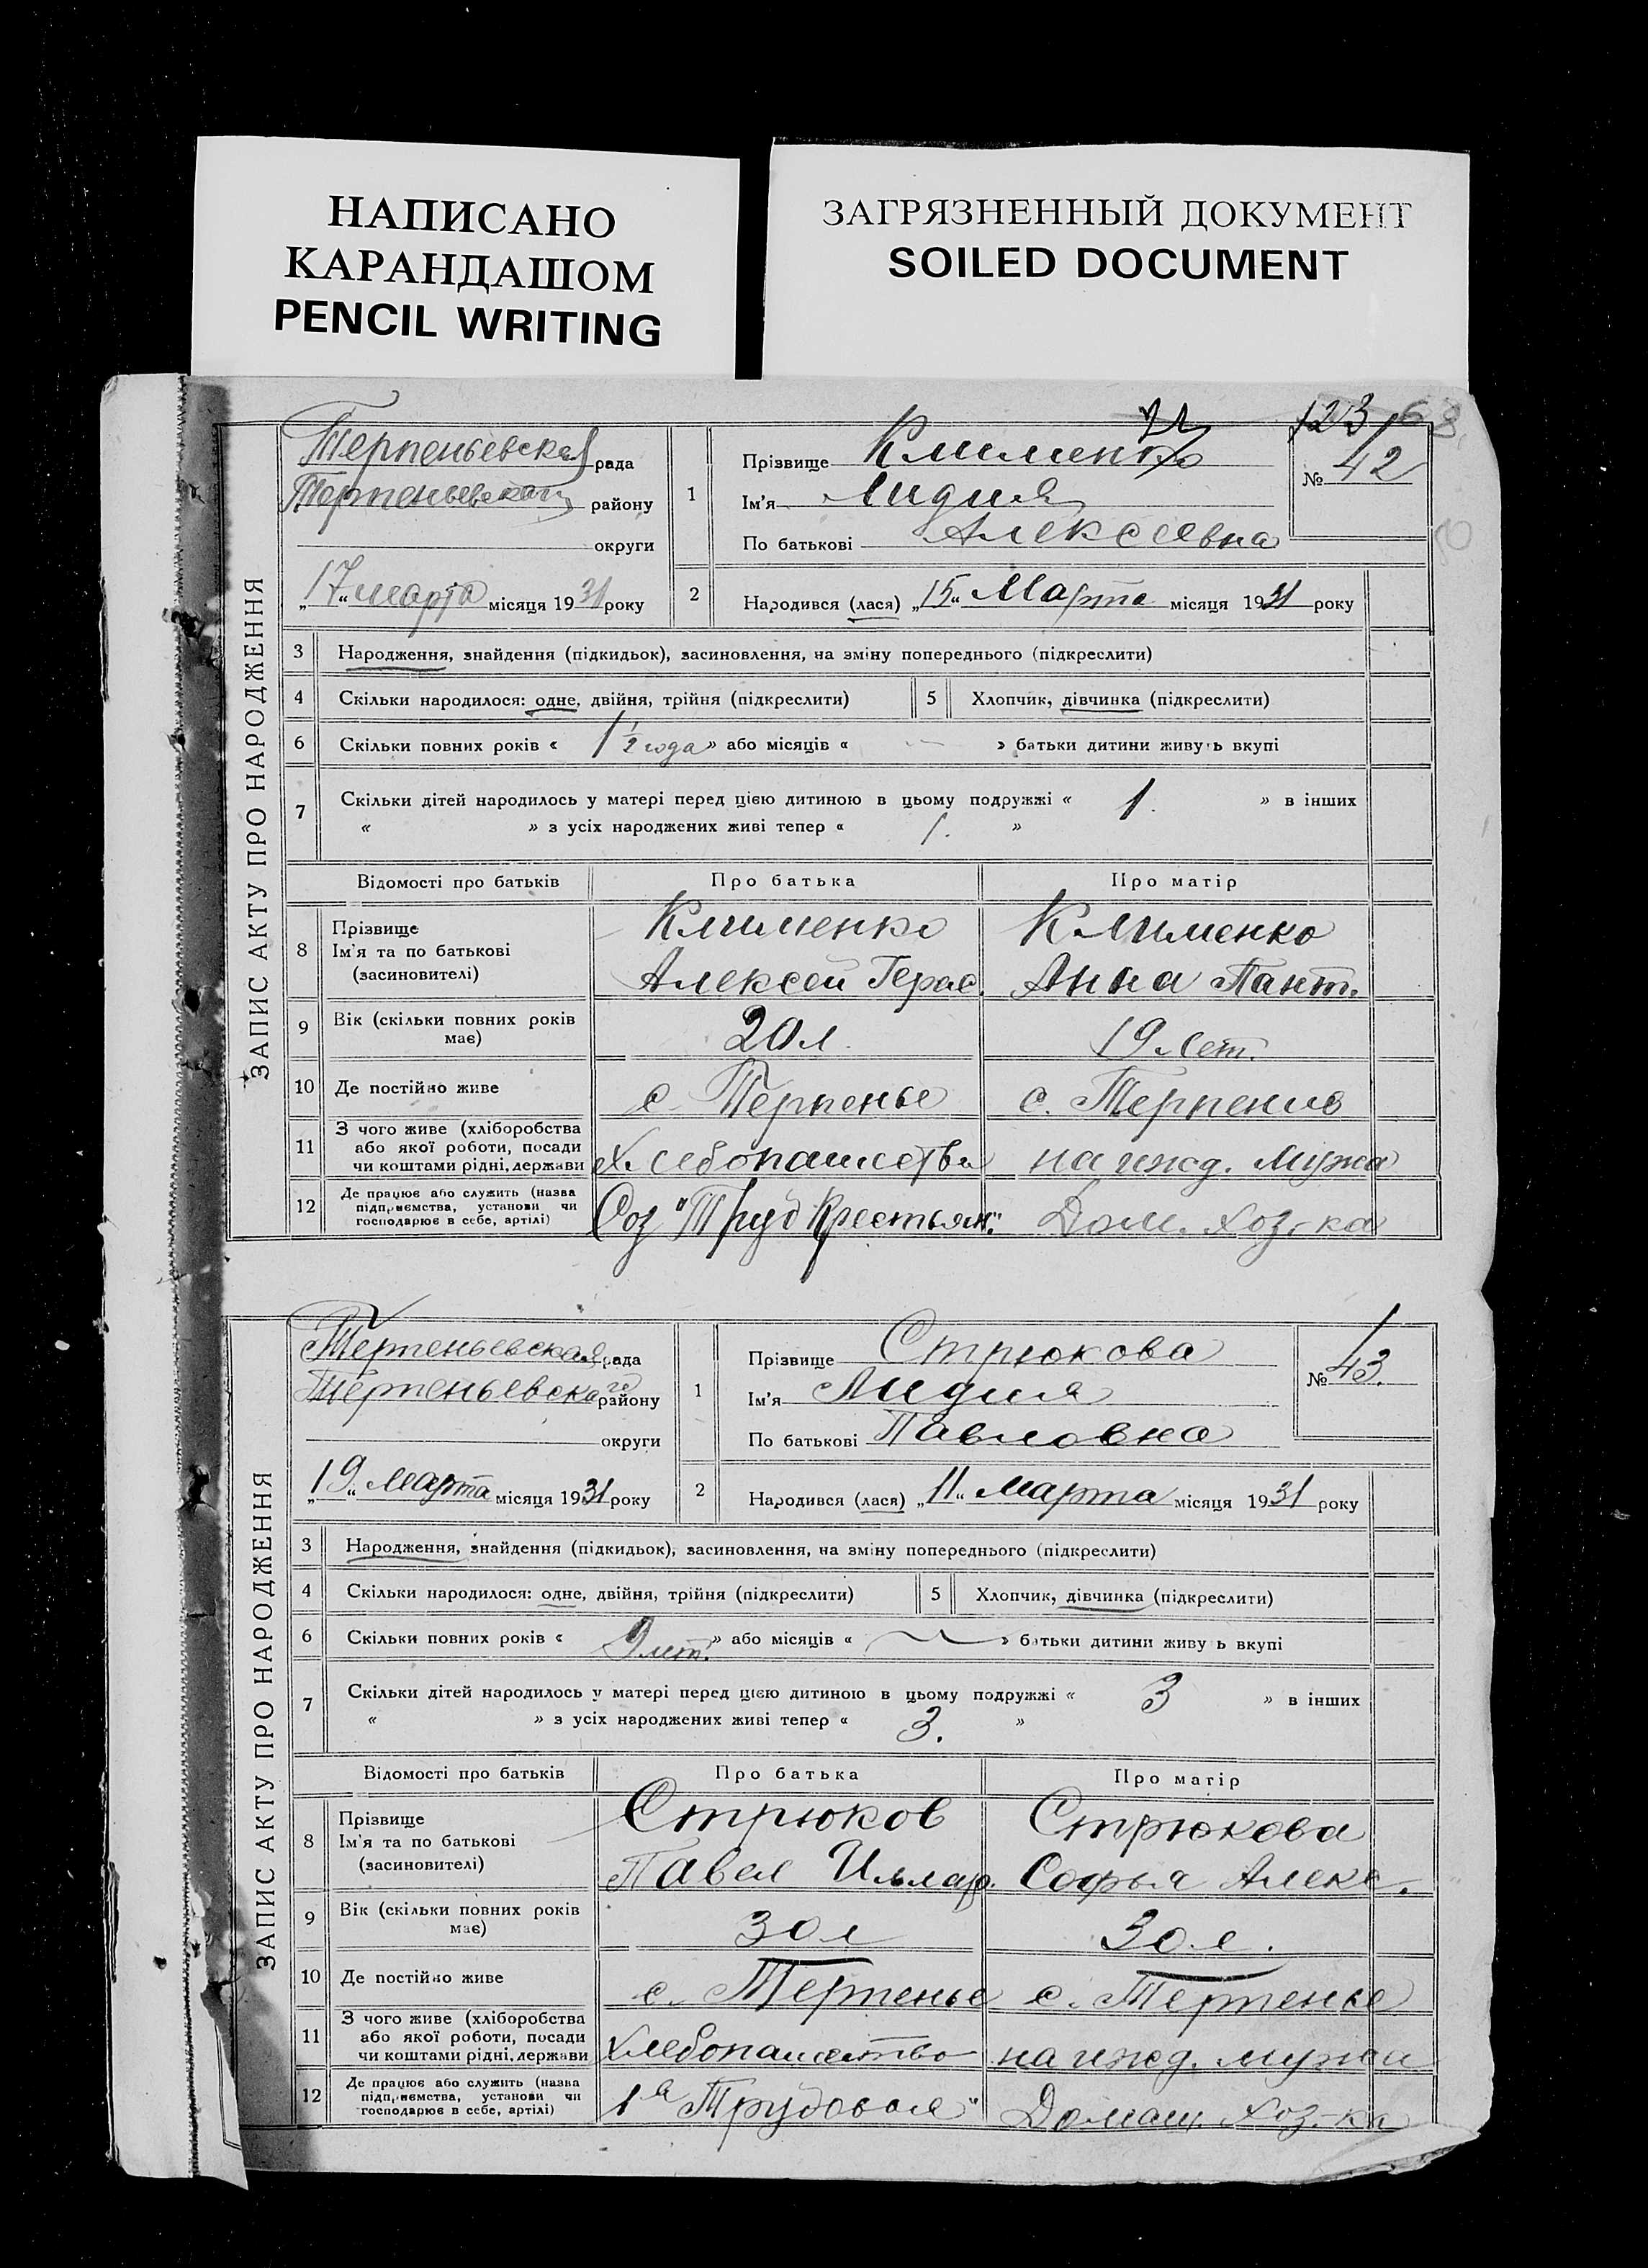 НАПИСАНО
КАРАНДАШОМ
PENCIL WRITING
ЗАГРЯЗНЕННЫЙ ДОКУМЕНТ
SOILED DOCUMENT
123
ЗАПИС АКТУ ПРО НАРОДЖЕННЯ
Терпеньевская рада
Терпеньевского району
округи
„17“ марта місяця 1931 року
1 Прізвище Клименко
Ім'я Лидия
По батькові Алексеевна
№ 42
2 Народився (лася) „15“ Марта місяця 1931 року
3 Народження, знайдення (підкидьок), засиновлення, на зміну попереднього (підкреслити)
4 Скільки народилося: одне, двійня, трійня (підкреслити) 5 Хлопчик, дівчинка (підкреслити)
6 Скільки повних років « 1 1/2 года » або місяців « — » батьки дитини живуть вкупі
7 Скільки дітей народилось у матері перед цією дитиною в цьому подружжі « 1. » в інших
« » з усіх народжених живі тепер « 1. »
Відомості про батьків Про батька Про матір
8 Прізвище Ім'я та по батькові (засиновителі)
Клименко Клименко
Алексей Герас. Анна Пант.
9 Вік (скільки повних років має) 20 л. 19 лет.
10 Де постійно живе с. Терпенье с. Терпение
11 З чого живе (хліборобства або якої роботи, посади чи коштами рідні, держави хлебопашество на ижд. мужа
12 Де працює або служить (назва підприємства, установи чи господарює в себе, артілі) Соз "Труд Крестьян." Дом. хоз-ка
ЗАПИС АКТУ ПРО НАРОДЖЕННЯ
Терпеньевская рада
Терпеньевского району
округи
„19“ марта місяця 1931 року
1 Прізвище Стрюкова
Ім'я Лидия
По батькові Павловна
№ 43.
2 Народився (лася) „11“ марта місяця 1931 року
3 Народження, знайдення (підкидьок), засиновлення, на зміну попереднього (підкреслити)
4 Скільки народилося: одне, двійня, трійня (підкреслити) 5 Хлопчик, дівчинка (підкреслити)
6 Скільки повних років « 9 лет. » або місяців « — » батьки дитини живуть вкупі
7 Скільки дітей народилось у матері перед цією дитиною в цьому подружжі « 3 » в інших
« » з усіх народжених живі тепер « 3. »
Відомості про батьків Про батька Про матір
8 Прізвище Ім'я та по батькові (засиновителі)
Стрюков Стрюкова
Павел Иллар. Софья Алекс.
9 Вік (скільки повних років має) 30 л 30 л.
10 Де постійно живе с. Терпенье с. Терпенье
11 З чого живе (хліборобства або якої роботи, посади чи коштами рідні, держави хлебопашество на ижд. мужа
12 Де працює або служить (назва підприємства, установи чи господарює в себе, артілі) 1а Трудовая" Домаш. хоз-ка